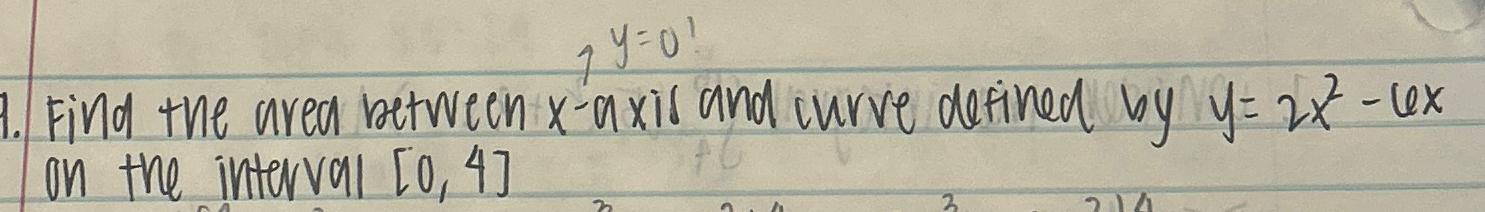 y=0!
1. Find the area between x-axis and curve defined by y= 2x² - 6x
on the interval [0, 4]